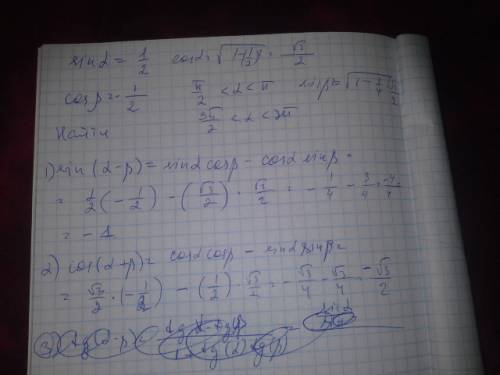 sin α = 1/2   cos α = √(1-(1/2)²) = √3/2
cos β = -1/2   π/2 < α < π   sin β = √(1-1/4) = √3/2
3π/2 < α < 2π
Найти
1) sin (α-β) = sin α cos β - cos α sin β =
= 1/2 (-1/2) - (√3/2) · √3/2 = -1/4 - 3/4 = -4/4
= -1
2) cos(α+β) = cos α cos β - sin α sin β =
= √3/2 · (-1/2) - (1/2) · √3/2 = -√3/4 - √3/4 = -√3/2